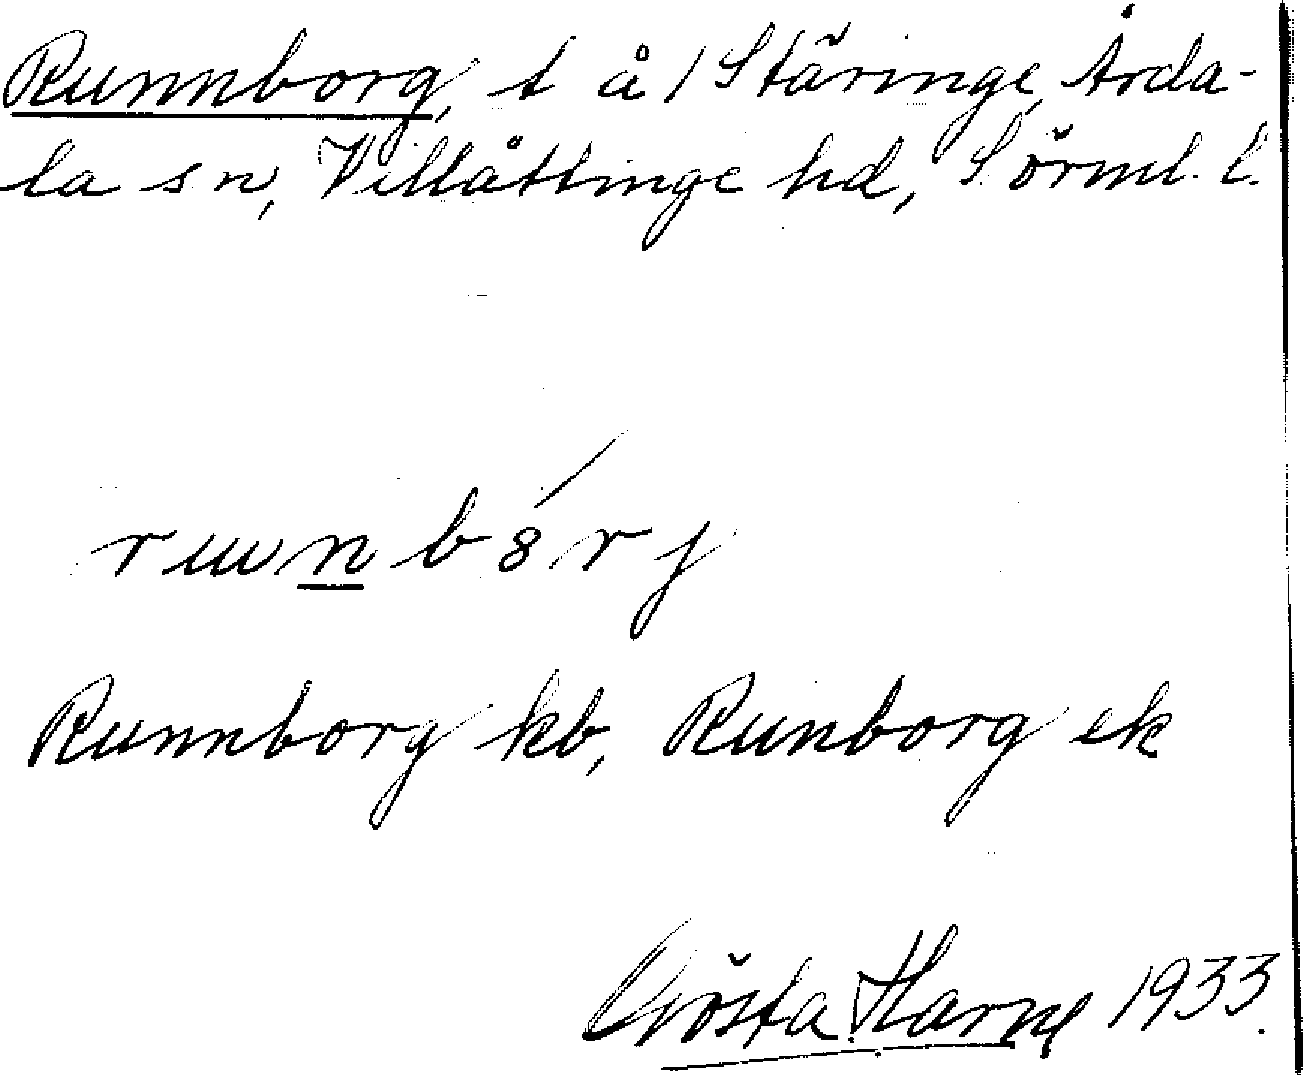 Runnborg, t å / Stäringe, Årda-
la sn, Villåttinge hd, Sörml. l.
runbórj
Runnborg kb, Runborg ek
Gösta Harne 1933.